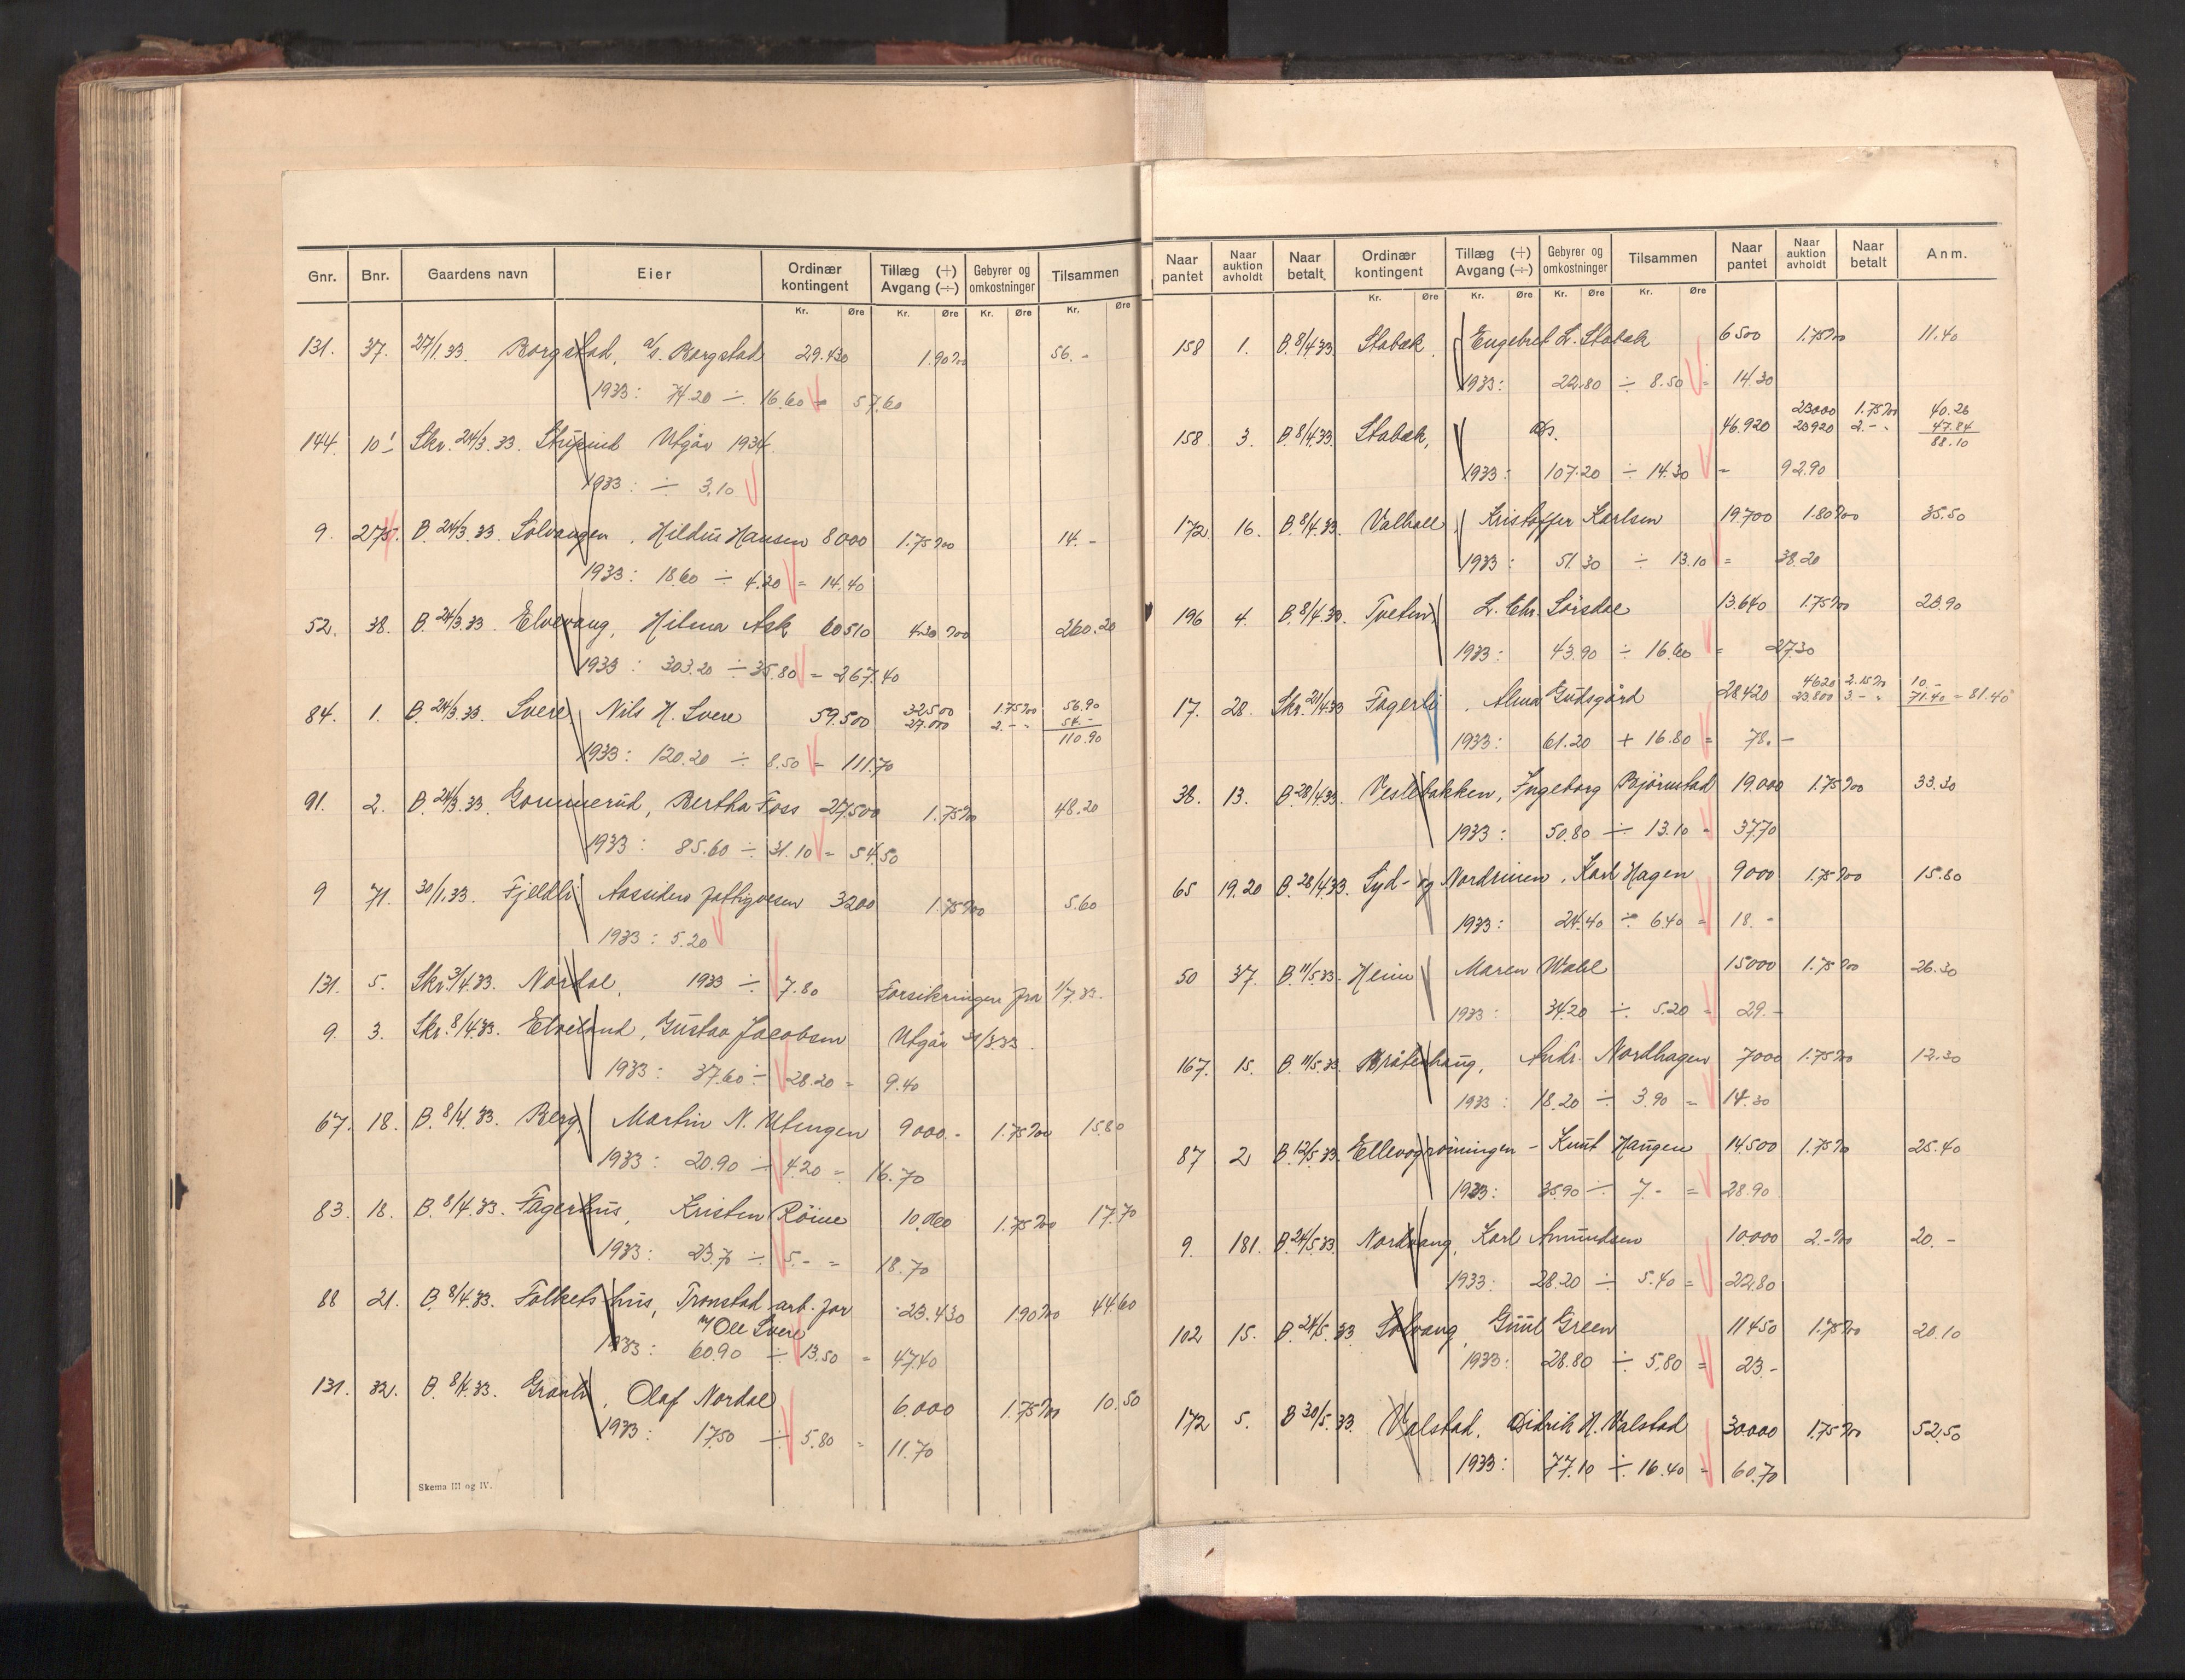 Gnr. Bnr. Gaardens navn Eier Ordinær kontingent Tillæg (+) Avgang (÷) Gebyrer og omkostninger Tilsammen
Kr. Øre Kr. Øre Kr. Øre Kr. Øre
131. 37. 27/1.33. Borgstad, A/s. Borgstad 29.430 1.90‰ 56.-
1933: 74.20 ÷ 16.60 = 57.60
144. 10 Skr. 24/3.33. Utgår 1934.
1933: ÷ 3.10
9. 275. B. 24/3.33. Solvangen, Hildus Hansen 8000 1.75‰ 14.-
1933: 18.60 ÷ 4.20 = 14.40
52. 38. B. 24/3.33. Elvevang, Hilma Ask 60510 4.30‰ 260.20
1933: 303.20 ÷ 35.80 = 267.40
84. 1. B. 24/3.33. Svere, Nils H. Svere 59.500 32500 1.75‰ 56.90
27.000 2.- " 54.-
110.90
1933: 120.20 ÷ 8.50 = 111.70
91. 2. B. 24/3.33. Gommerud, Bertha Foss 27.500 1.75‰ 48.20
1933: 85.60 ÷ 31.10 = 54.50
9 71. 30/1.33. Fjeldli 3200 1.75‰ 5.60
1933: 5.20
131. 5. Skr. 3/4.33. Nordal, 1933 ÷ 7.80 Forsikringen fra 1/7.33.
9. 3. Skr. 8/4.33. Elveland, Gustav Jacobsen Utgår 31/3.33.
1933: 37.60 ÷ 28.20 = 9.40
67. 18. B. 8/4.33. Berg, Martin N. Utengen 9000.- 1.75‰ 15.80
1933: 20.90 ÷ 4.20 = 16.70
83. 18. B. 8/4.33. Fagerhus, Kristen Röine 10.060 1.75‰ 17.70
1933: 23.70 ÷ 5.- = 18.70
88 21. B. 8/4.33. Folkets hus, Tronstad arb. for 23.430 1.90‰ 44.60
v/ Ole Svere
1933: 60.90 ÷ 13.50 = 47.40
131. 32. B. 8/4.33. Granli, Olaf Nordal 6.000 1.75‰ 10.50
1933: 17.50 ÷ 5.80 = 11.70
Skema III og IV.
Naar pantet Naar auktion avholdt Naar betalt. Ordinær kontingent Tillæg (+) Avgang (÷) Gebyrer og omkostninger Tilsammen Naar pantet Naar auktion avholdt Naar betalt Anm.
Kr. Øre Kr. Øre Kr. Øre Kr. Øre
158 1. B. 8/4.33. Stabæk, Engebret L. Stabæk 6500 1.75‰ 11.40
1933: 22.80 ÷ 8.50 = 14.30
158. 3. B. 8/4.33. Stabæk, do. 46.920 23000 1.75‰ 40.26
23920 2.- " 47.84
88.10
1933: 107.20 ÷ 14.30 = 92.90
172 16. B. 8/4.33. Valhall, Kristoffer Karlsen 19.700 1.80‰ 35.50
1933: 51.30 ÷ 13.10 = 38.20
196 4. B. 8/4.33. Tveten, L. Chr. Sörsdal 13.640 1.75‰ 23.90
1933: 43.90 ÷ 16.60 = 27.30
17. 28. Skr. 21/4.33 Fagerli, Alma Gutsgård 28.420 4620 2.15‰ 10.-
23.800 3.- " 71.40 = 81.40
1933: 61.20 + 16.80 = 78.-
38. 13. B. 28/4.33. Veslebakken, Ingeborg Bjørnstad 19.000 1.75‰ 33.30
1933: 50.80 ÷ 13.10 = 37.70
65 19.20 B. 28/4.33. Syd- og Nordmoen, Karl Hagen 9000 1.75‰ 15.80
1933: 24.40 ÷ 6.40 = 18.-
50 37. B. 11/5.33. Heim Maren Wahl 15000 1.75‰ 26.30
1933: 34.20 ÷ 5.20 = 29.-
167. 15. B. 11/5.33. Bråtenhaug, Andr. Nordhagen 7000 1.75‰ 12.30
1933: 18.20 ÷ 3.90 = 14.30
87 2 B. 12/5.33. Knut Haugen 14.500 1.75‰ 25.40
1933: 35.90 ÷ 7.- = 28.90
9. 181. B. 24/5.33. Nordvang, Karl Amundsen 10.000 2.-‰ 20.-
1933: 28.20 ÷ 5.40 = 22.80
102 15. B. 24/5.33 Solvang, Gunl Green 11450 1.75‰ 20.10
1933: 28.80 ÷ 5.80 = 23.-
172 5. B 30/5.33. Valstad, Didrik H. Valstad 30000 1.75‰ 52.50
1933: 77.10 ÷ 16.40 = 60.70